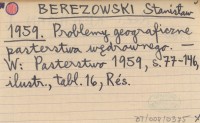 BEREZOWSKI Stanisław
1959. Problemy geograficzne
pasterstwa wędrownego. —
W: Pasterstwo 1959, s. 77-146,
ilustr., tabl. 16, Rés.